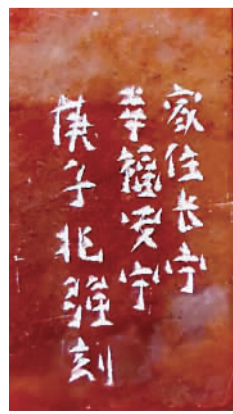 家住长宁
幸福安宁
庚子兆强刻